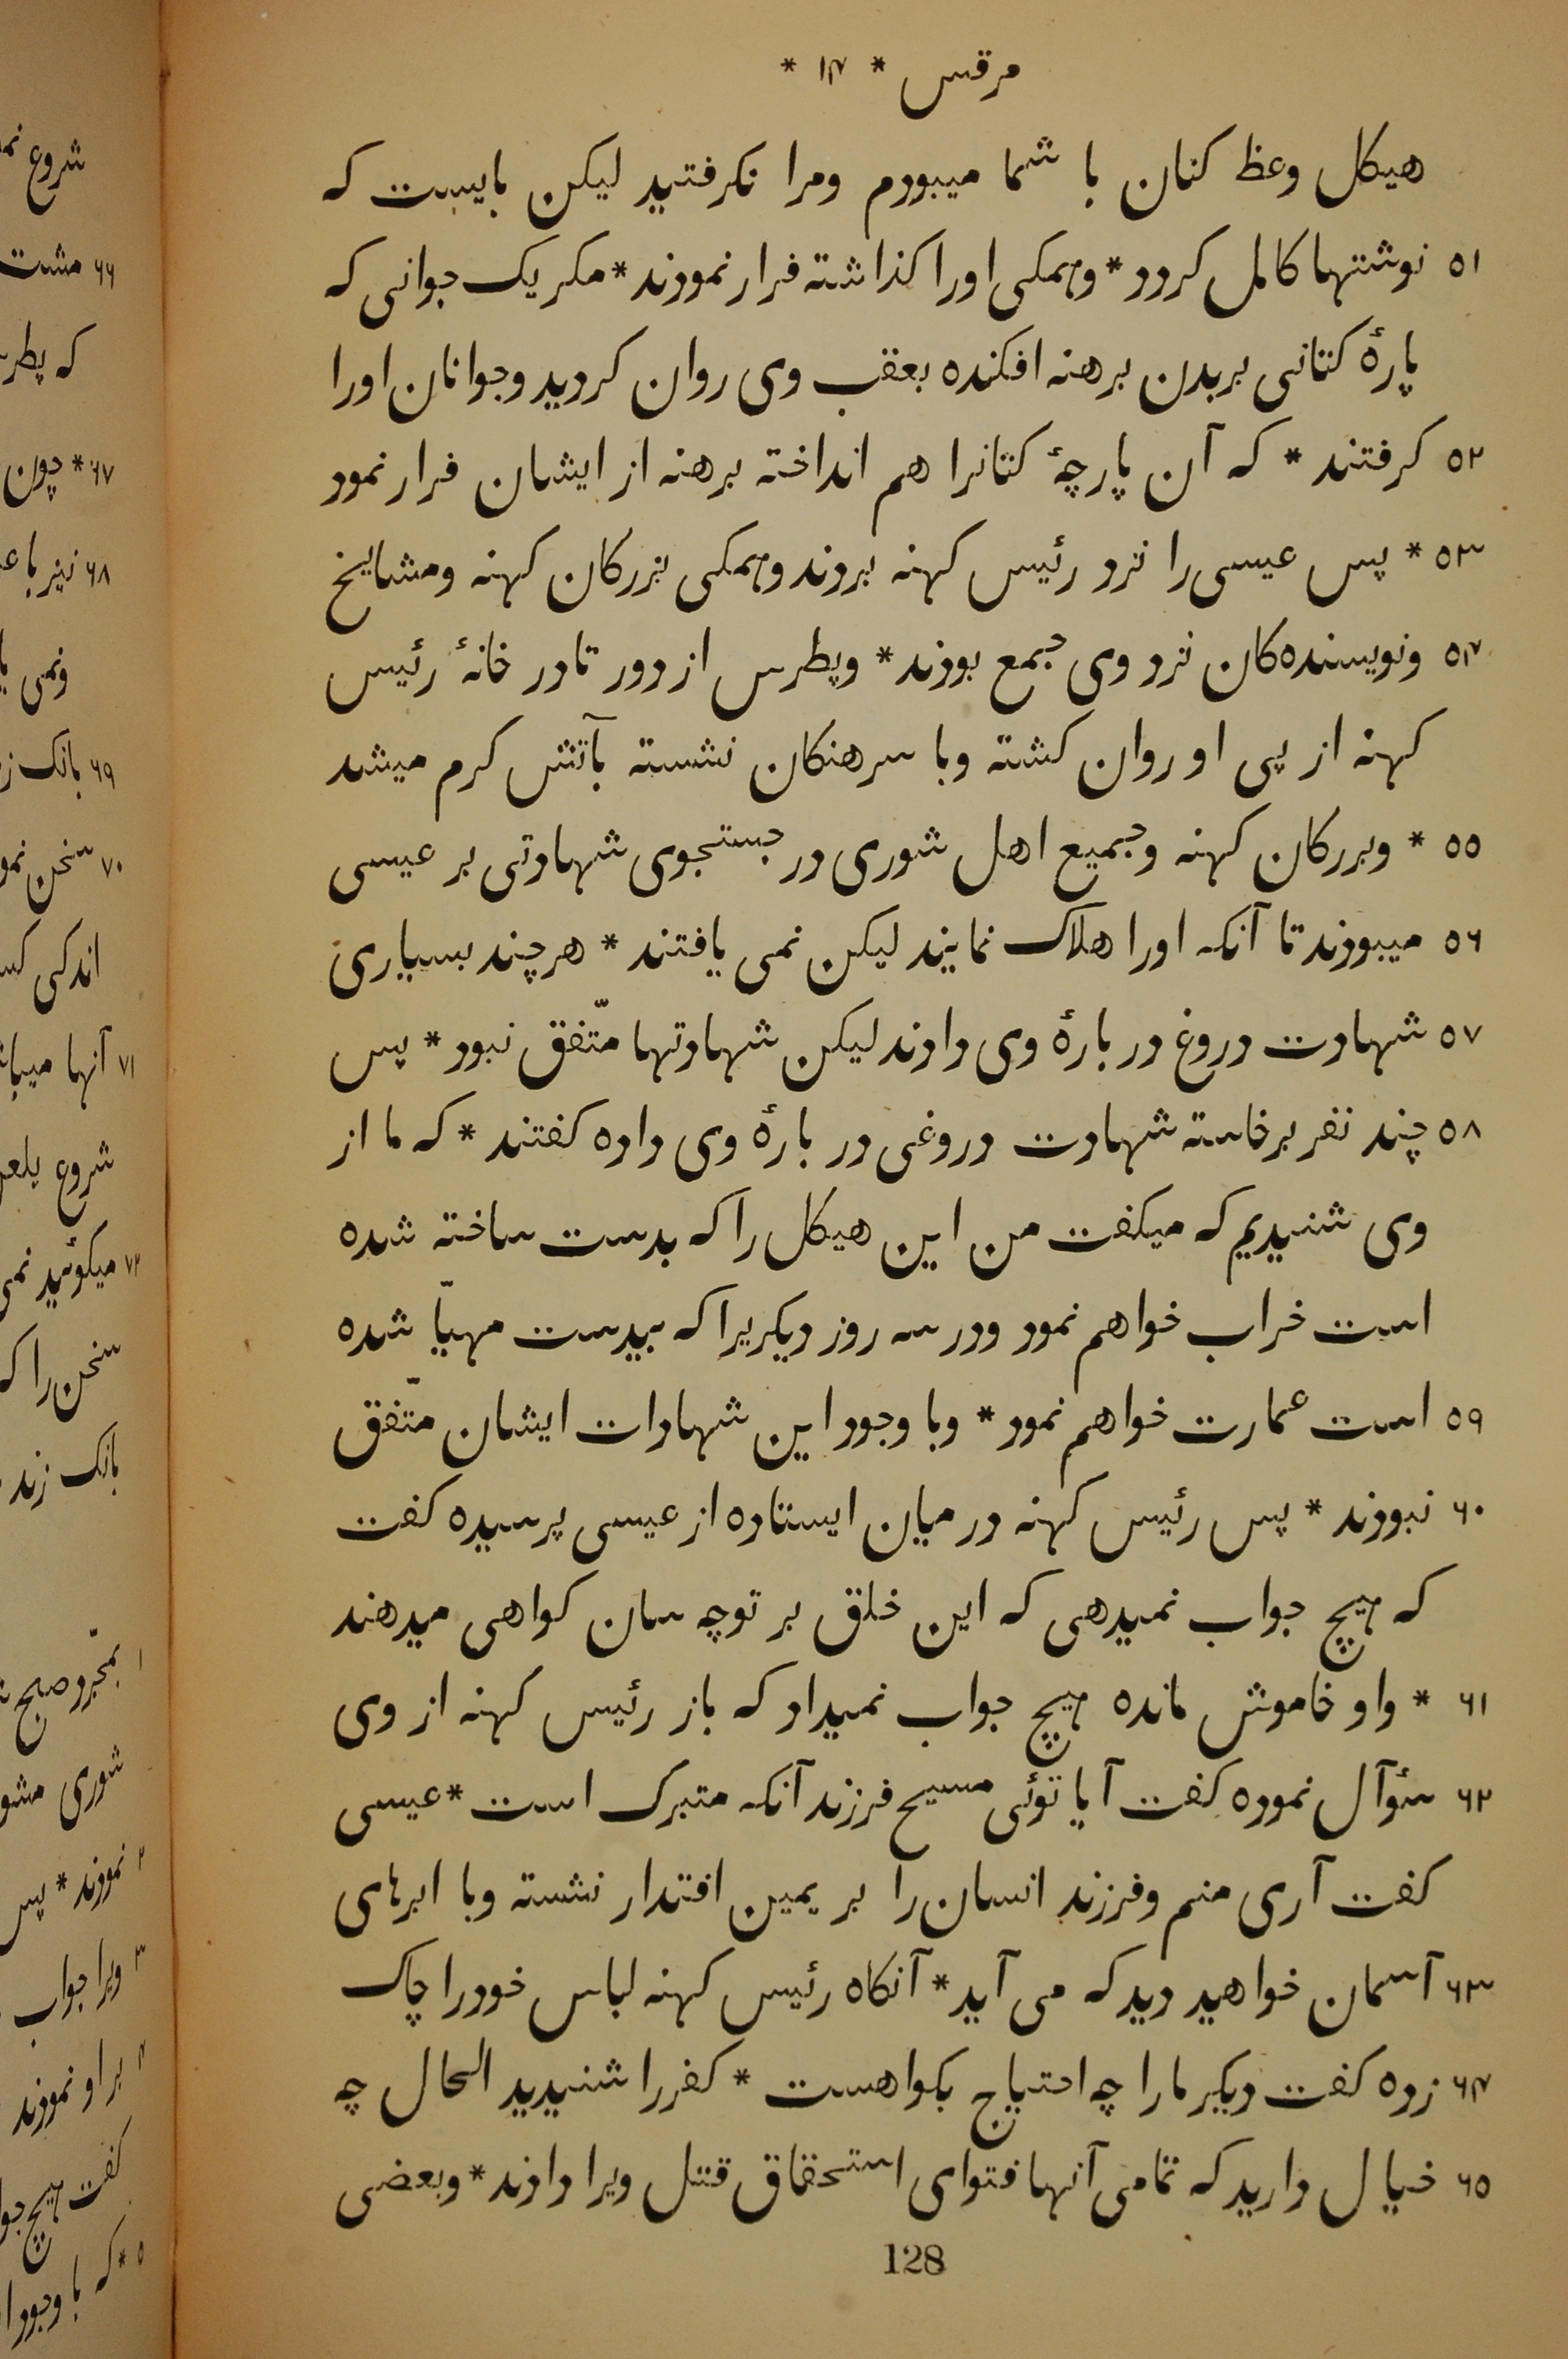 مرقس * ۱۴ *
هیکل وعظ کنان با شما میبودم ومرا نکرفتید لیکن بایست که
۵۱ نوشتها کامل کردد * وهمکی اورا کذاشته فرار نمودند * مکر یک جوانی که
پارهٔ کتانی بربدن برهنه افکنده بعقب وی روان کردید وجوانان اورا
۵۲ کرفتند * که آن پارچهٔ کتانرا هم انداخته برهنه از ایشان فرار نمود
۵۳ * پس عیسی را نزد رئیس کهنه بردند وهمکی بزرکان کهنه ومشایخ
۵۴ ونویسنده کان نزد وی جمع بودند * وپطرس از دور تا در خانهٔ رئیس
کهنه از پی او روان کشته وبا سرهنکان نشسته بآتش کرم میشد
۵۵ * وبزرکان کهنه وجمیع اهل شوری در جستجوی شهادتی بر عیسی
۵۶ میبودند تا آنکه اورا هلاک نمایند لیکن نمی یافتند * هرچند بسیاری
۵۷ شهادت دروغ در بارهٔ وی دادند لیکن شهادتها متّفق نبود * پس
۵۸ چند نفر برخاسته شهادت دروغی در بارهٔ وی داده کفتند * که ما از
وی شنیدیم که میکفت من این هیکل را که بدست ساخته شده
است خراب خواهم نمود ودر سه روز دیکریرا که بیدست مهیّا شده
۵۹ است عمارت خواهم نمود * وبا وجود این شهادات ایشان متّفق
۶۰ نبودند * پس رئیس کهنه در میان ایستاده از عیسی پرسیده کفت
که هیچ جواب نمیدهی که این خلق بر تو چه سان کواهی میدهند
۶۱ * واو خاموش مانده هیچ جواب نمیداد که باز رئیس کهنه از وی
۶۲ سؤآل نموده کفت آیا توئی مسیح فرزند آنکه متبرک است * عیسی
کفت آری منم وفرزند انسان را بر یمین اقتدار نشسته وبا ابرهای
۶۳ آسمان خواهید دید که می آید * آنکاه رئیس کهنه لباس خودرا چاک
۶۴ زده کفت دیکر مارا چه احتیاج بکواهست * کفررا شنیدید الحال چه
۶۵ خیال دارید که تمامی آنها فتوای استحقاق قتل ویرا دادند * وبعضی
128
شروع
۶۶ مشت
که
۶۷ * چون
۶۸ نیز با
ونمی
۶۹ بانک
۷۰ سخن
اندکی
۷۱ آنها
شروع
۷۲ میکوئید
سخن را
بانک زند
۱ بمجّرد صبح
شوری
۲ نمودند * پس
۳ ویرا جواب
۴ بر او نمودند
کفت هیچ
۵ * که با وجود